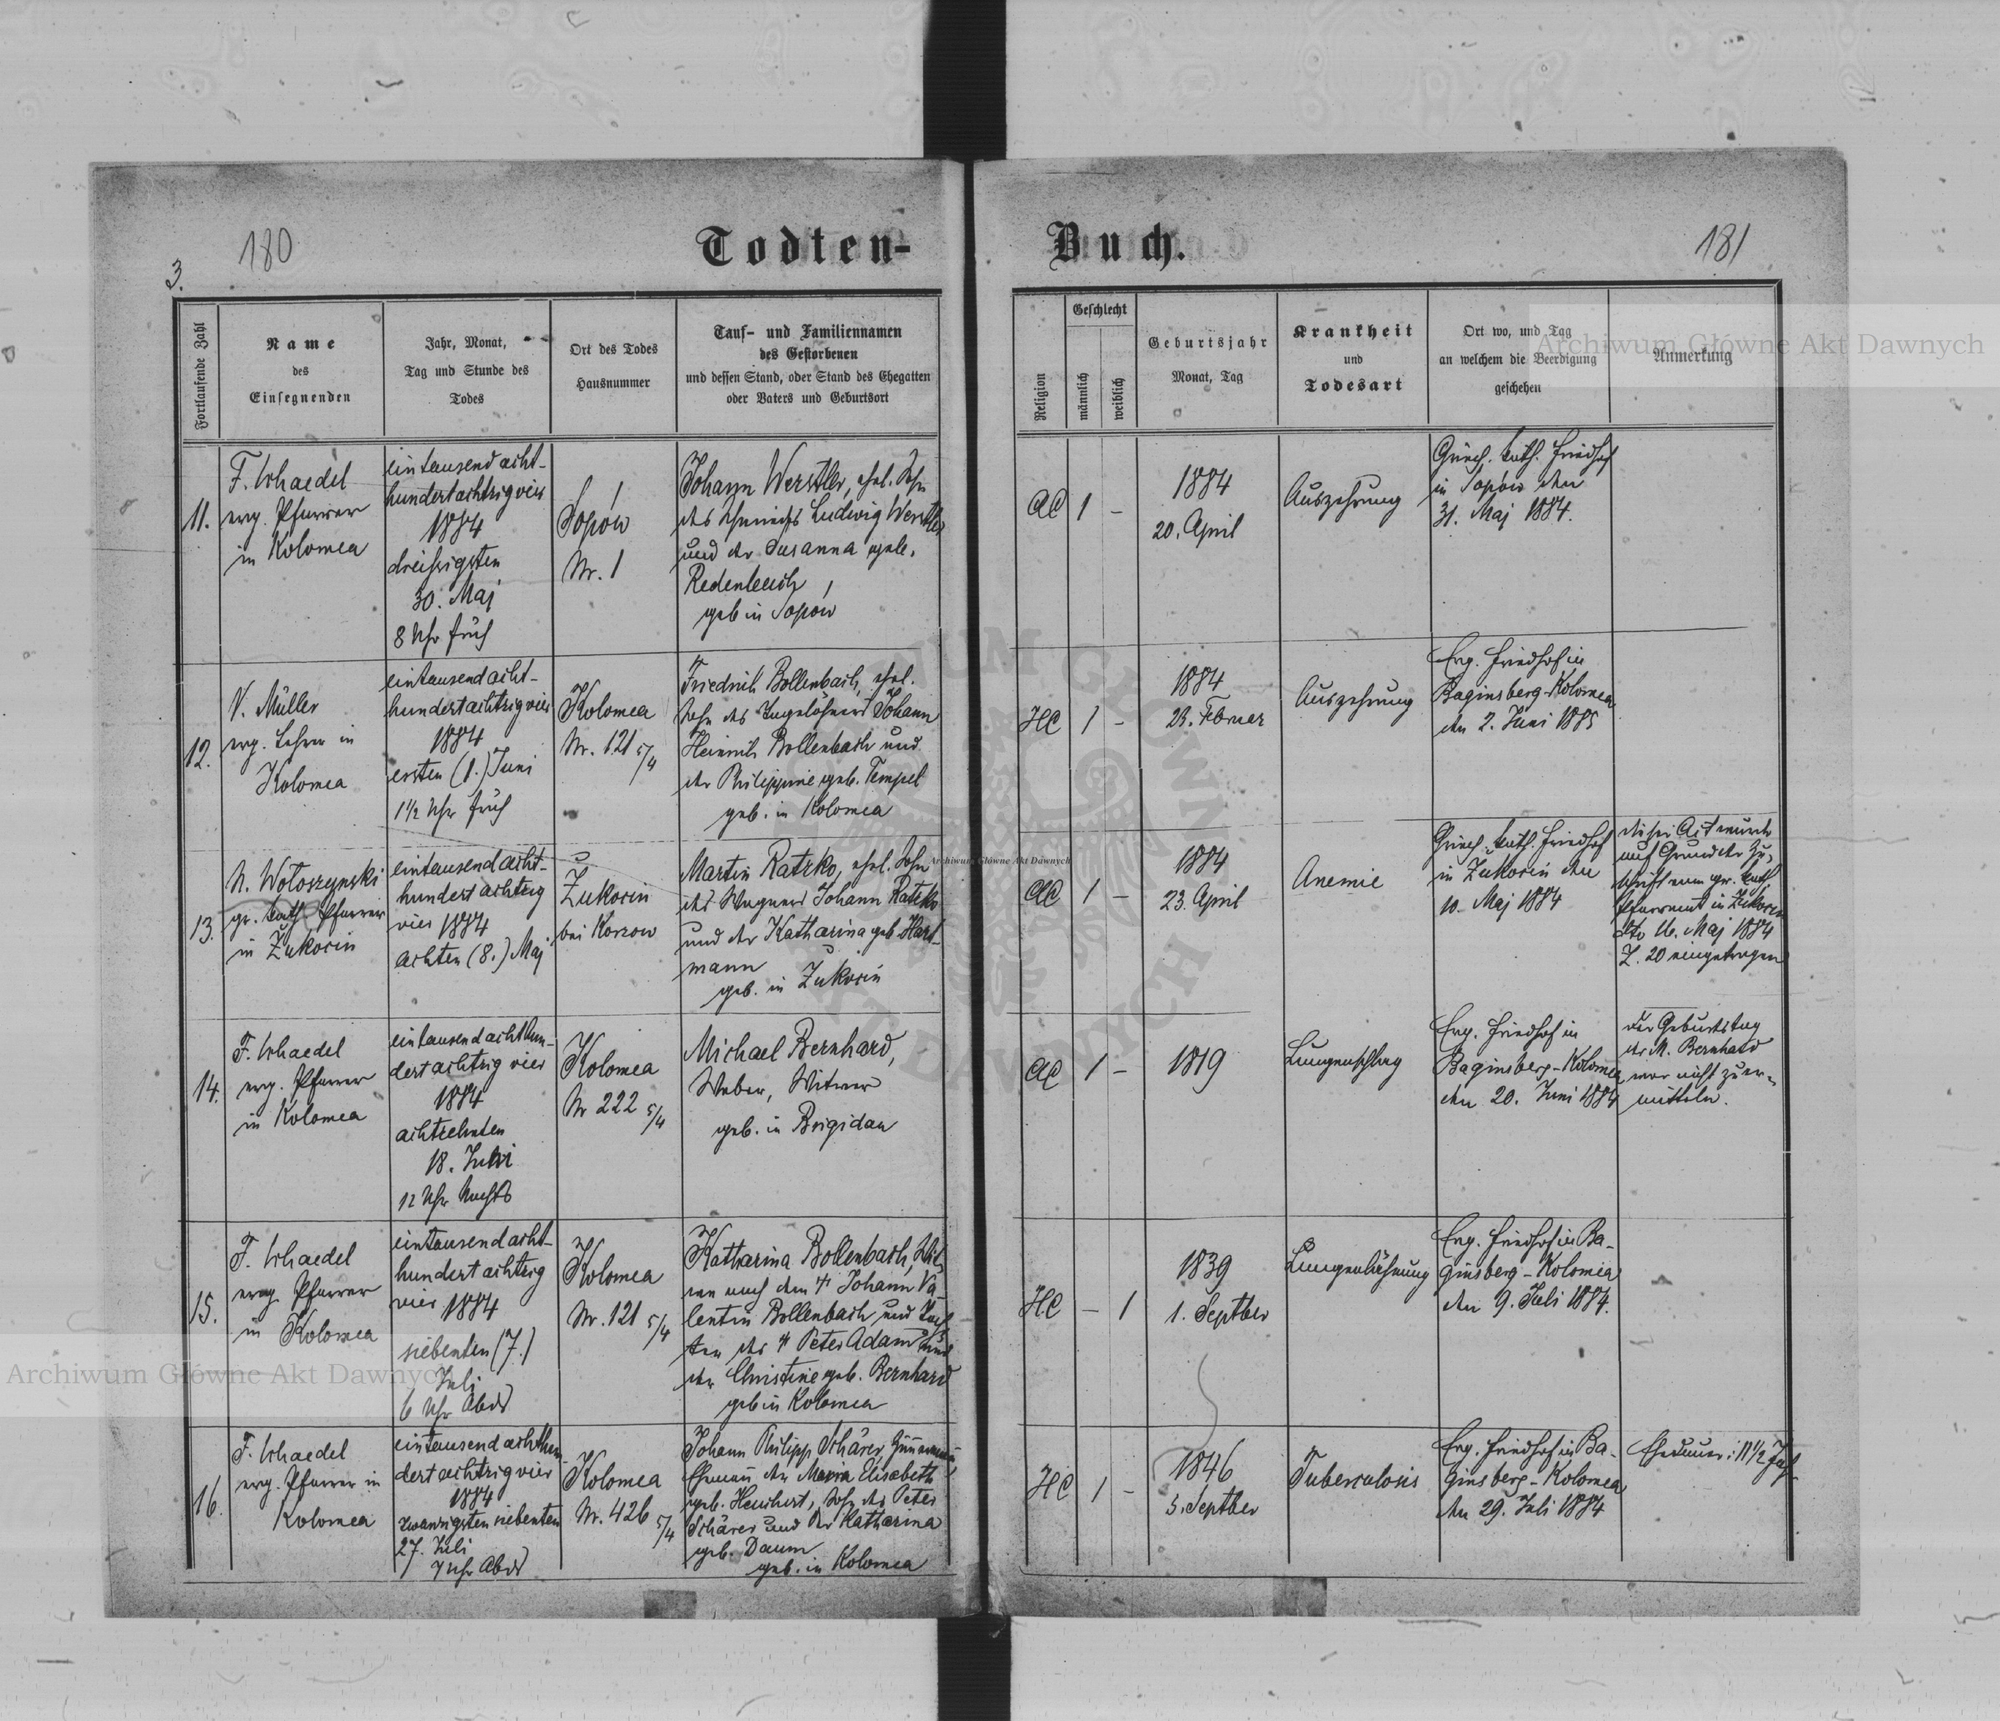 180
Todten-
Buch.
181
3.
Fortlaufende Zahl
Name
des
Einsegnenden
Jahr, Monat,
Tag und Stunde des
Todes
Ort des Todes
Hausnummer
Tauf- und Familiennamen
des Gestorbenen
und dessen Stand, oder Stand des Ehegatten
oder Vaters und Geburtsort
Religion
Geschlecht
männlich
weiblich
Geburtsjahr
Monat, Tag
Krankheit
und
Todesart
Ort wo, und Tag
an welchem die Beerdigung
geschehen
Anmerkung
Archiwum Główne Akt Dawnych
11.
F. Schaedel
evg. Pfarrer
in Kolomea
eintausend acht-
hundertachtzigvier
1884
dreißigsten
30. Maj
8 Uhr früh
Sopów
Nr. 1
Johann Werstler, ehel. Sohn
des Schmieds Ludwig Werstler
und der Susanna geb.
geb in Sopów
AC
1
-
1884
20. April
Auszehrung
Griech. kath. Friedhof
in Sopów den
31. Maj 1884.
12.
V. Müller
evg. Lehrer in
Kolomea
eintausend acht-
hundertachtzigvier
1884
ersten (1.) Juni
1½ Uhr früh
Kolomea
Nr. 121 5/4
Friedrich Bollenbach, ehel.
Sohn des Tagelöhners Johann
Heinrich Bollenbach und
der Philippine geb. Tempel
geb. in Kolomea
HC
1
-
1884
Auszehrung
Evg. Friedhof in
Baginsberg-Kolomea
den 2. Juni 1885
13.
N. Wołoszynski
gr. kath. Pfarrer
in Żukocin
eintausend acht-
hundert achtzig
vier 1884
achten (8.) Maj
Żukocin
bei Korzow
Martin Ratzko, ehel. Sohn
des Wagners Johann Ratzko
und der Katharina geb. Hart-
mann
geb. in Żukocin
AC
1
-
1884
23. April
Anemie
Griech. kath. Friedhof
in Zukocin den
10. Maj 1884
dieser Act wurde
auf Grund der Zu-
schrift vom gr. kath.
Pfarramt in Zukocin
dto 16. Maj 1884
Z. 20 eingetragen
Archiwum Główne Akt Dawnych
14.
F. Schaedel
evg. Pfarrer
in Kolomea
eintausend achthun-
dertachtzig vier
1884
achtzehnten
18.
12 Uhr Nachts
Kolomea
Nr 222 5/4
Michael Bernhard,
Weber, Witwer
geb. in Brigidau
AC
1
-
1819
Lungenschlag
Evg. Friedhof in
Baginsberg-Kolomea
den 20. Juni 1884
Der Geburtstag
des M. Bernhard
war nicht zu er-
mitteln.
15.
F. Schaedel
evg. Pfarrer
in Kolomea
eintausend acht-
hundert achtzig
vier 1884
siebenten (7.)
Juli
6 Uhr Abds
Kolomea
Nr. 121 5/4
Katharina Bollenbach, Wit-
we nach dem † Johann Va-
lentin Bollenbach und Toch-
ter des † Peter Adam und
der Christine geb. Bernhard
geb in Kolomea
HC
-
1
1839
1. Septber
Lungenlähmung
Evg. Friedhof in Ba-
ginsberg-Kolomea
den 9. Juli 1884.
Archiwum Główne Akt Dawnych
16.
F. Schaedel
evg. Pfarrer in
Kolomea
eintausend achthun-
dertachtzigvier
1884
zwanzigsten siebenten
27. Juli
7 Uhr Abds
Kolomea
Nr. 426 5/4
Johann Philipp Schärer,
Ehemann der Maria Elisabeth
geb. Sohn des Peter
Schärer und der Katharina
geb. Daum
geb. in Kolomea
HC
1
-
1846
5. Septber
Tuberculosis
Evg. Friedhof in Ba-
ginsberg-Kolomea
den 29. Juli 1884
Ehedauer: 11½ Jahr